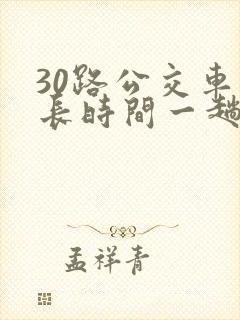 30路公交車
長時間一趟
孟祥青